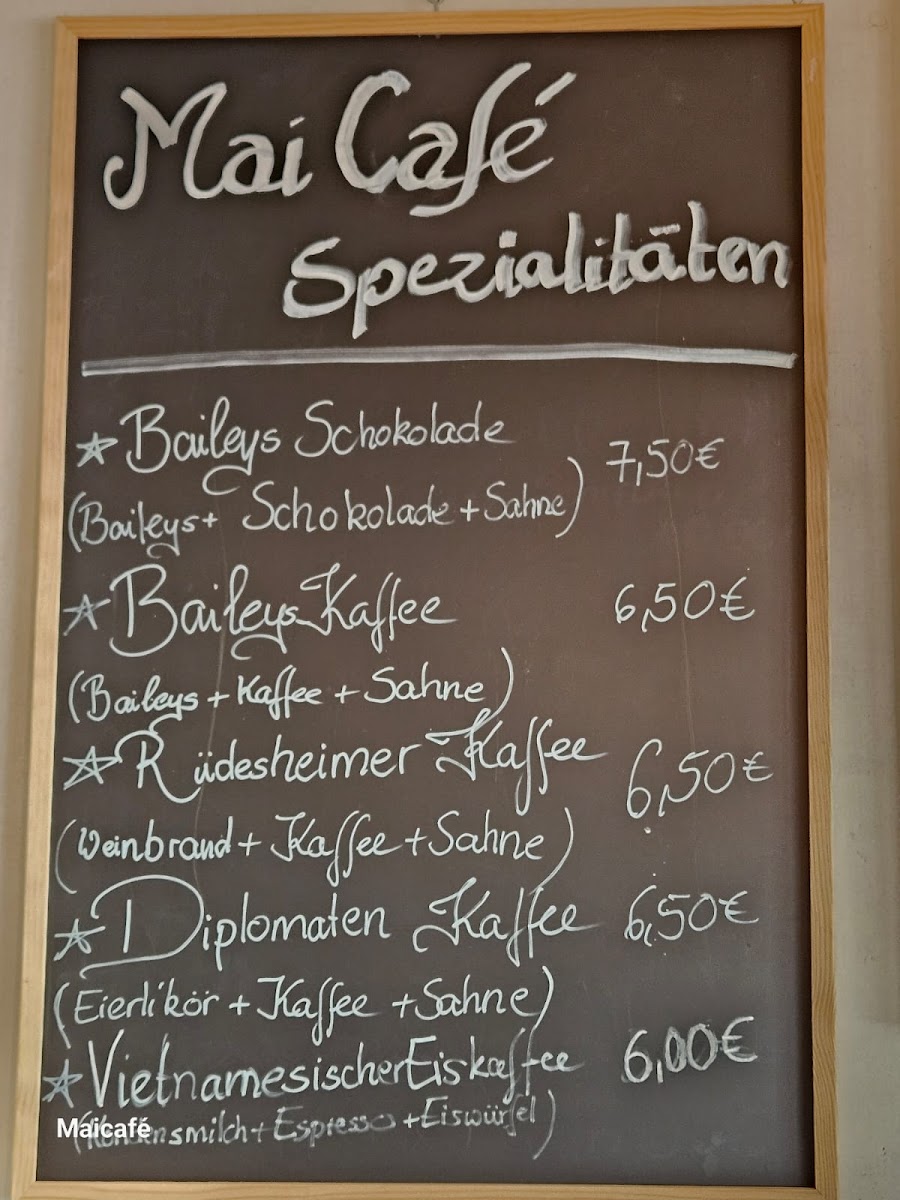 Mai Café
Spezialitäten
★ Baileys Schokolade 7,50€
(Baileys + Schokolade + Sahne)
★ Baileys Kaffee 6,50€
(Baileys + Kaffee + Sahne)
★ Rüdesheimer Kaffee 6,50€
(Weinbrand + Kaffee + Sahne)
★ Diplomaten Kaffee 6,50€
(Eierlikör + Kaffee + Sahne)
★ Vietnamesischer Eiskaffee 6,00€
(Kondensmilch + Espresso + Eiswürfel)
Maicafé